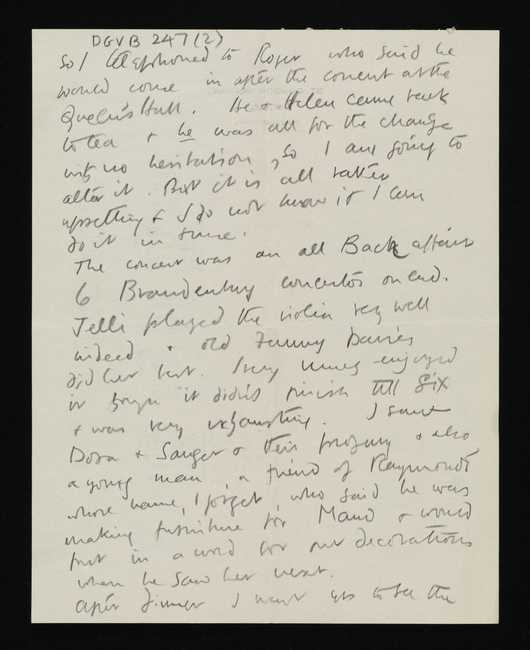 DGVB 247(2)
So I telephoned to Roger who said he
would come in after the concert at the
Queen's Hall. He & Helen came back
to tea & he was all for the change
with no hesitation, so I am going to
alter it. But it is all rather
upsetting & I do not know if I can
do it in time.
The concert was an all Bach affair
6 Brandenburg concertos on end.
Jelli played the violin very well
indeed & old Fanny Davies
did her best. I very much enjoyed
it though it didn't finish till six
& was very exhausting. I saw
Dora & Sanger & their progeny & also
a young man, a friend of Raymond's
whose name, I forget, who said he was
making furniture for Maud & would
put in a word for our decorations
when he saw her next.
After dinner I went to see the